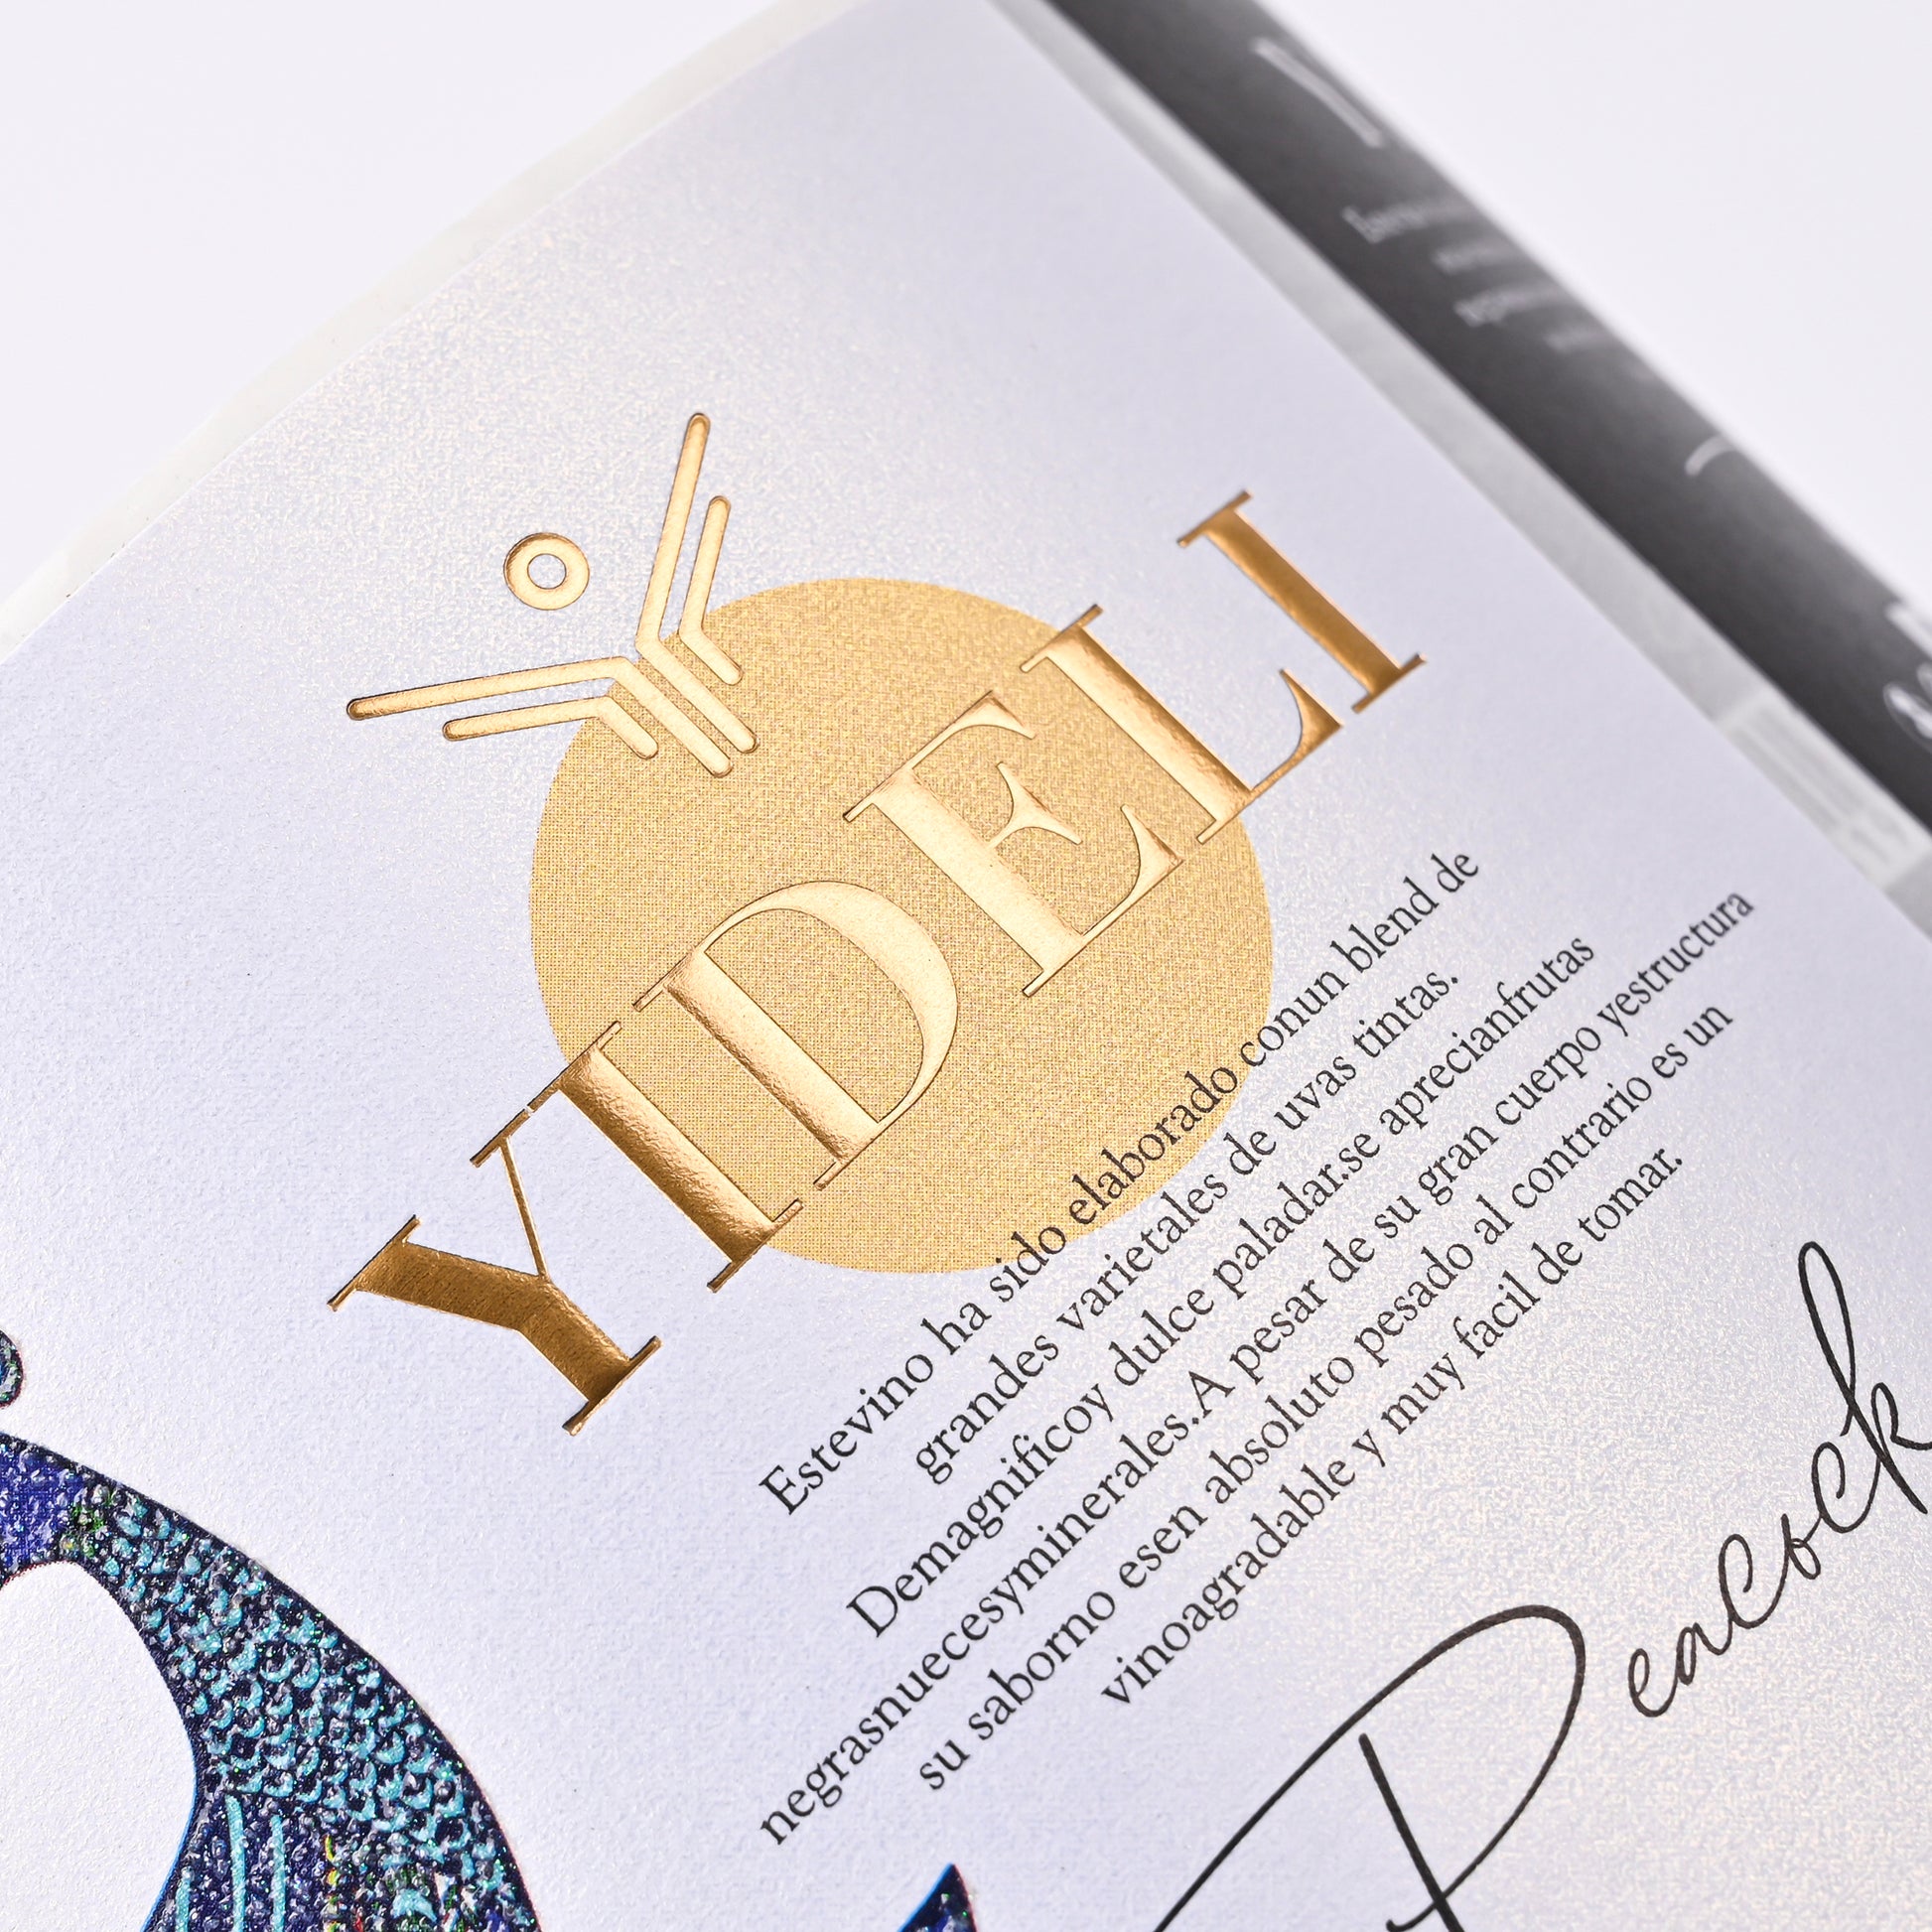 YIDELI
Estevino ha sido elaborado conun blend de
grandes varietales de uvas tintas.
Demagnificoy dulce paladar.se aprecianfrutas
negrasnuecesyminerales.A pesar de su gran cuerpo yestructura
su saborno esen absoluto pesado al contrario es un
vinoagradable y muy facil de tomar.
Peacock